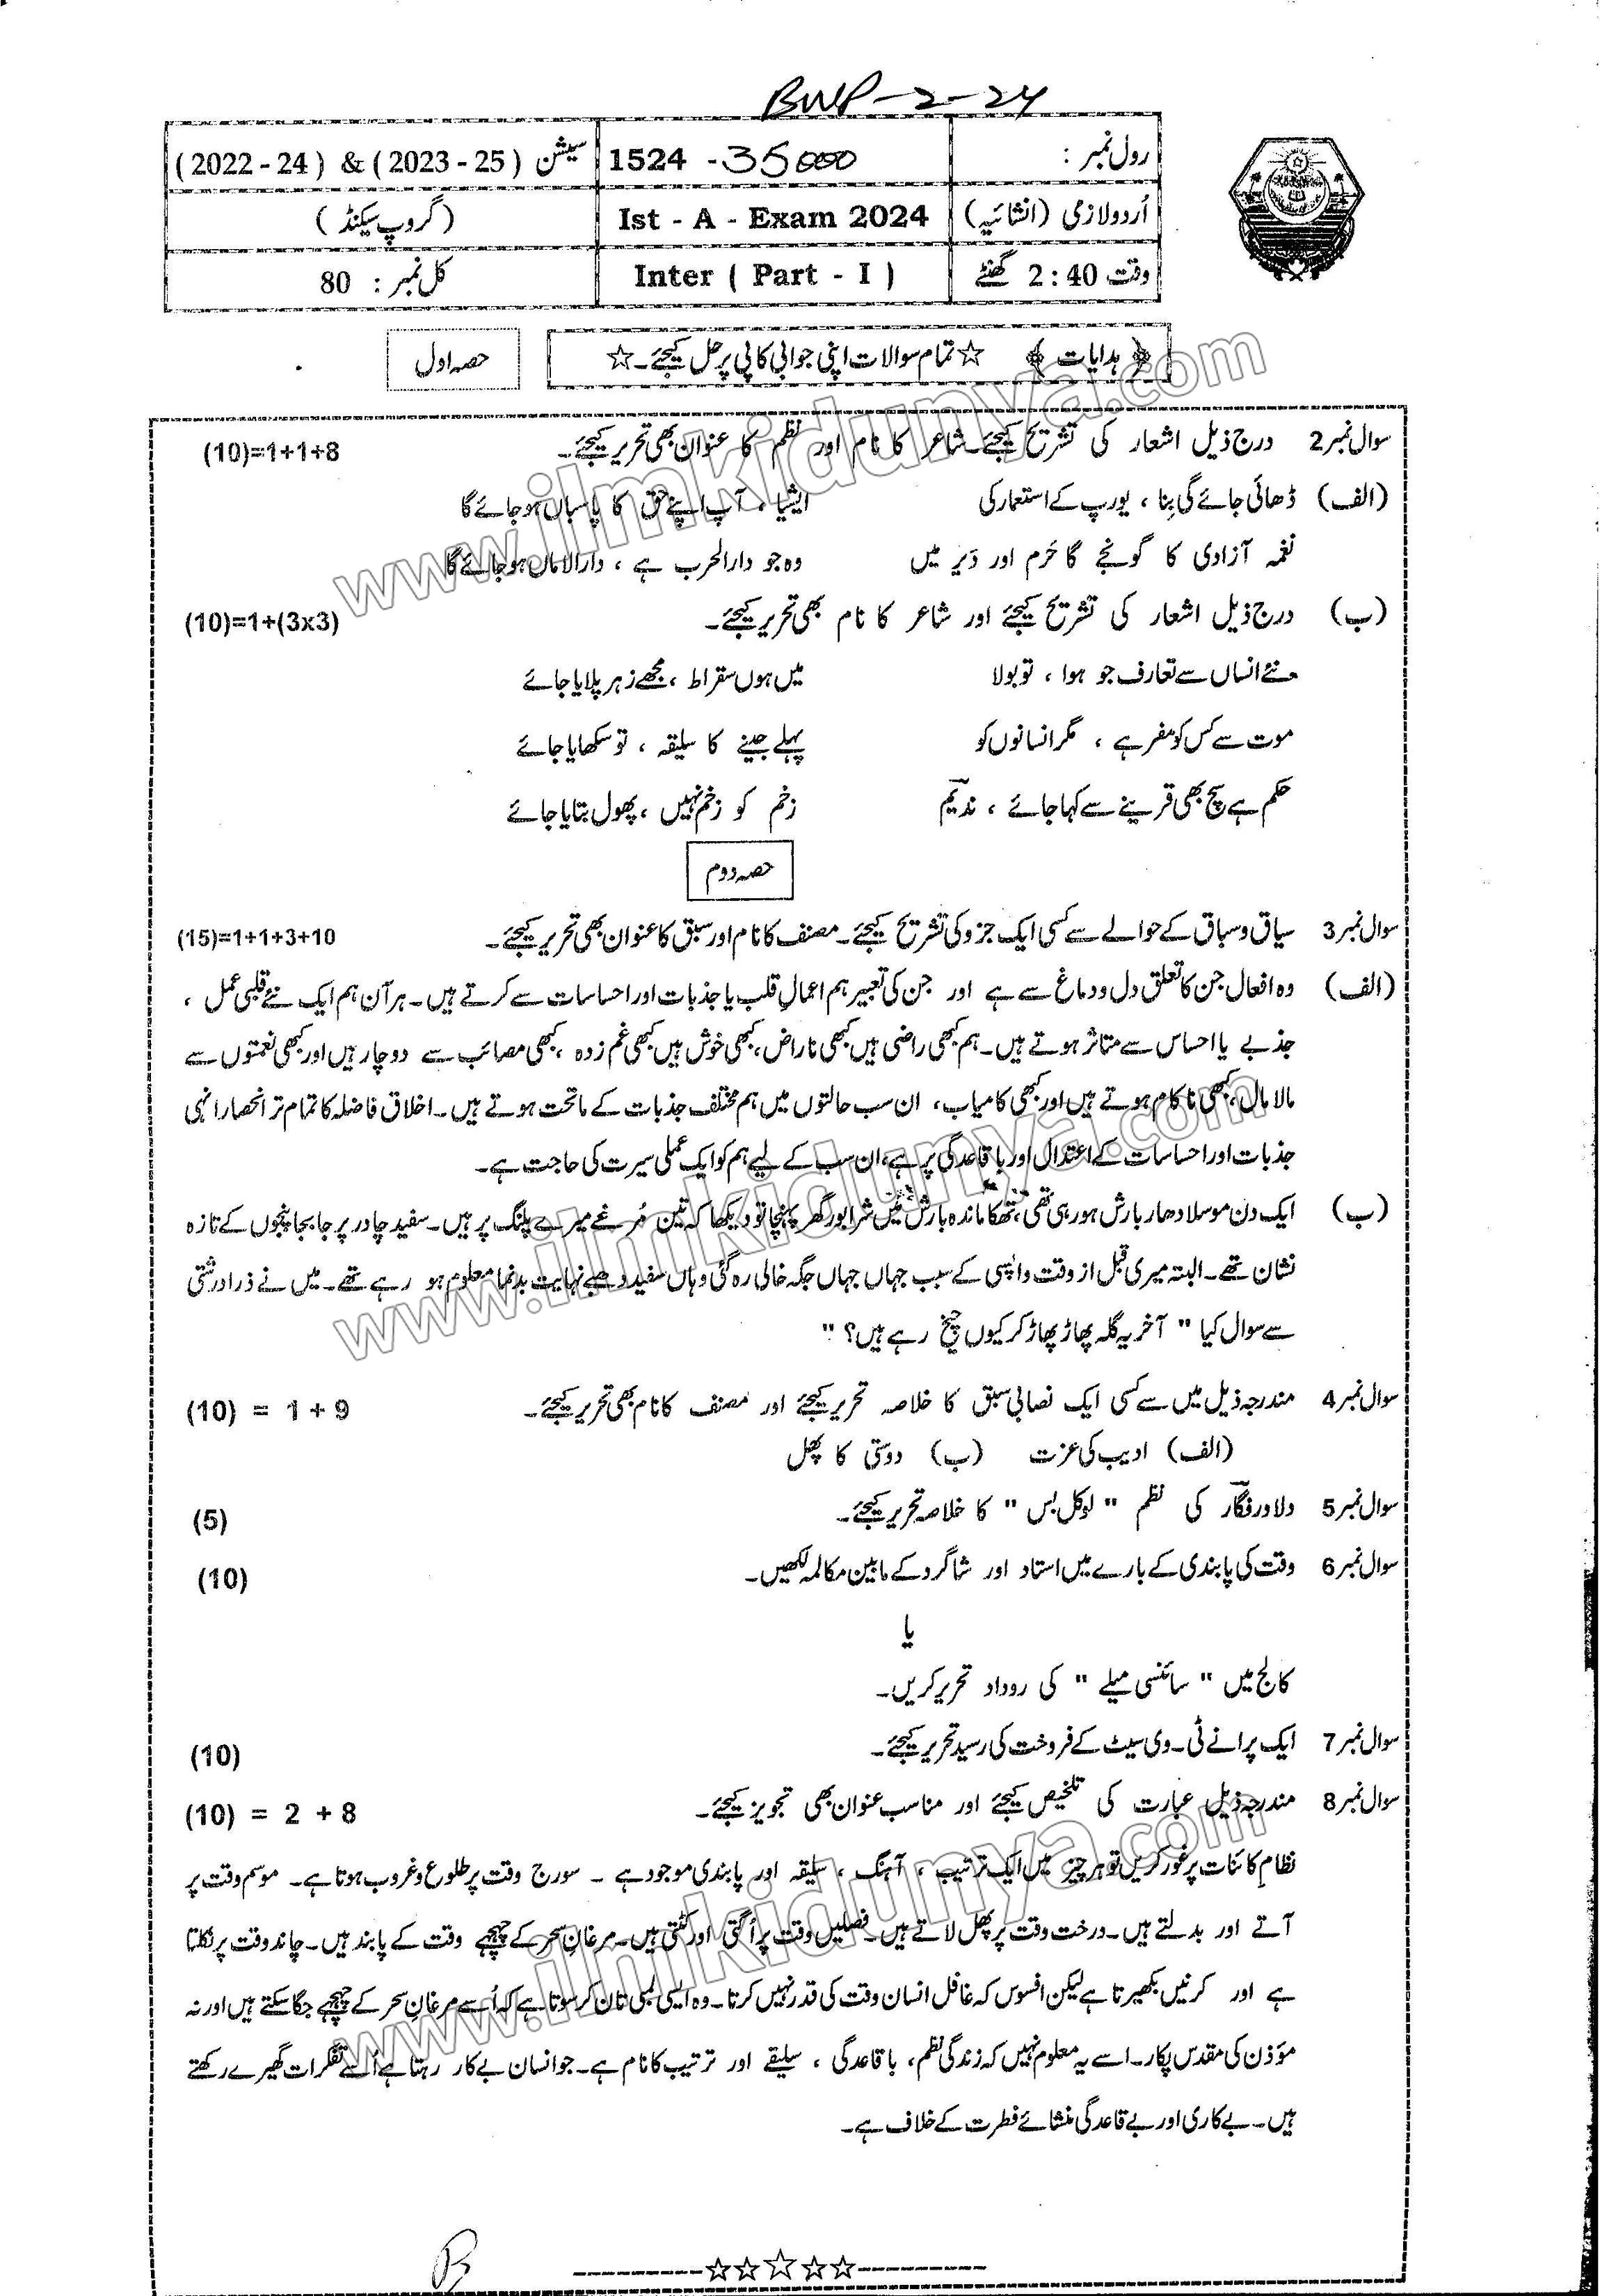 BWP-2-24
رول نمبر : 1524 -35000 سیشن ( 2023 - 25 ) & ( 2022 - 24 )
اُردو لازمی (انشائیہ) Ist - A - Exam 2024 ( گروپ سیکنڈ )
وقت 2:40 گھنٹے Inter ( Part - I ) کل نمبر : 80
﴿ ہدایات ﴾ ☆ تمام سوالات اپنی جوابی کاپی پر حل کیجئے۔ ☆ حصہ اول
سوال نمبر 2 درج ذیل اشعار کی تشریح کیجئے۔ شاعر کا نام اور نظم کا عنوان بھی تحریر کیجئے۔ (10)=1+1+8
(الف) ڈھائی جائے گی بِنا ، یورپ کے استعمار کی ایشیا ، آپ اپنے حق کا پاسباں ہو جائے گا
نغمہ آزادی کا گونجے گا حَرم اور دَیر میں وہ جو دارالحرب ہے ، دارالاماں ہو جائے گا
(ب) درج ذیل اشعار کی تشریح کیجئے اور شاعر کا نام بھی تحریر کیجئے۔ (10)=1+(3x3)
نئے انساں سے تعارف جو ہوا ، تو بولا میں ہوں سقراط ، مجھے زہر پلایا جائے
موت سے کس کو مفر ہے ، مگر انسانوں کو پہلے جینے کا سلیقہ ، تو سکھایا جائے
حکم ہے سچ بھی قرینے سے کہا جائے ، ندیمؔ زخم کو زخم نہیں ، پھول بتایا جائے
حصہ دوم
سوال نمبر 3 سیاق و سباق کے حوالے سے کسی ایک جزو کی تشریح کیجئے۔ مصنف کا نام اور سبق کا عنوان بھی تحریر کیجئے۔ (15)=1+1+3+10
(الف) وہ افعال جن کا تعلق دل و دماغ سے ہے اور جن کی تعبیر ہم اعمالِ قلب یا جذبات اور احساسات سے کرتے ہیں۔ ہر آن ہم ایک نئے قلبی عمل ،
جذبے یا احساس سے متاثر ہوتے ہیں۔ ہم کبھی راضی ہیں کبھی ناراض ، کبھی خوش ہیں کبھی غم زدہ ، کبھی مصائب سے دوچار ہیں اور کبھی نعمتوں سے
مالا مال ، کبھی ناکام ہوتے ہیں اور کبھی کامیاب ، ان سب حالتوں میں ہم مختلف جذبات کے ماتحت ہوتے ہیں۔ اخلاق فاضلہ کا تمام تر انحصار انہی
جذبات اور احساسات کے اعتدال اور باقاعدگی پر ہے، ان سب کے لیے ہم کو ایک عملی سیرت کی حاجت ہے۔
(ب) ایک دن موسلادھار بارش ہو رہی تھی ، تھکا ماندہ بارش میں شرابور گھر پہنچا تو دیکھا کہ تین مُرغے میرے پلنگ پر ہیں۔ سفید چادر پر جا بجا پنجوں کے تازہ
نشان تھے۔ البتہ میری قبل از وقت واپسی کے سبب جہاں جہاں جگہ خالی رہ گئی وہاں سفید دھبے نہایت بدنما معلوم ہو رہے تھے۔ میں نے ذرا درشتی
سے سوال کیا " آخر یہ گلہ پھاڑ پھاڑ کر کیوں چیخ رہے ہیں؟ "
سوال نمبر 4 مندرجہ ذیل میں سے کسی ایک نصابی سبق کا خلاصہ تحریر کیجئے اور مصنف کا نام بھی تحریر کیجئے۔ (10) = 1 + 9
(الف) ادیب کی عزت (ب) دوستی کا پھل
سوال نمبر 5 دلاور فگارؔ کی نظم " لوکل بس " کا خلاصہ تحریر کیجئے۔ (5)
سوال نمبر 6 وقت کی پابندی کے بارے میں استاد اور شاگرد کے مابین مکالمہ لکھیں۔ (10)
یا
کالج میں " سائنسی میلے " کی روداد تحریر کریں۔
سوال نمبر 7 ایک پرانے ٹی۔وی سیٹ کے فروخت کی رسید تحریر کیجئے۔ (10)
سوال نمبر 8 مندرجہ ذیل عبارت کی تلخیص کیجئے اور مناسب عنوان بھی تجویز کیجئے۔ (10) = 2 + 8
نظامِ کائنات پر غور کریں تو ہر چیز میں ایک ترتیب ، آہنگ ، سلیقہ اور پابندی موجود ہے ۔ سورج وقت پر طلوع و غروب ہوتا ہے۔ موسم وقت پر
آتے اور بدلتے ہیں۔ درخت وقت پر پھل لاتے ہیں۔ فصلیں وقت پر اُگتی اور کٹتی ہیں۔ مرغانِ سحر کے چہچہے وقت کے پابند ہیں۔ چاند وقت پر نکلتا
ہے اور کرنیں بکھیرتا ہے لیکن افسوس کہ غافل انسان وقت کی قدر نہیں کرتا۔ وہ ایسی لمبی تان کر سوتا ہے کہ اُسے مرغانِ سحر کے چہچہے جگا سکتے ہیں اور نہ
مؤذن کی مقدس پکار۔ اسے یہ معلوم نہیں کہ زندگی نظم ، باقاعدگی ، سلیقے اور ترتیب کا نام ہے۔ جو انسان بے کار رہتا ہے اُسے تفکرات گھیرے رکھتے
ہیں۔ بے کاری اور بے قاعدگی منشائے فطرت کے خلاف ہے۔
www.ilmkidunya.com
www.ilmkidunya.com
www.ilmkidunya.com